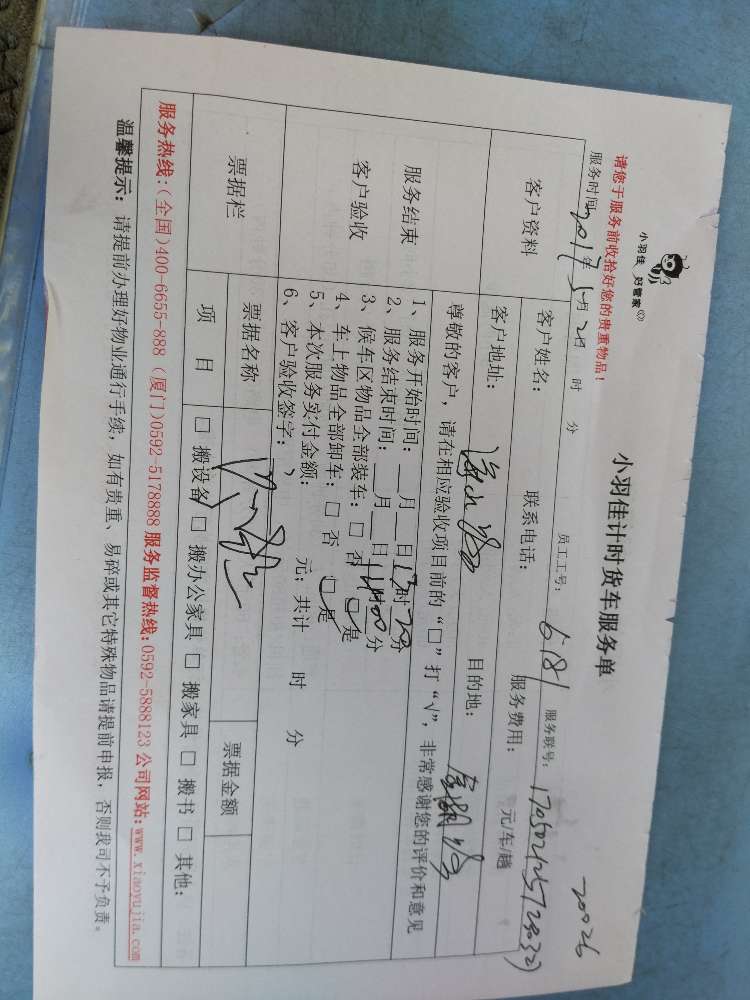 20026
小羽佳 好管家
小羽佳计时货车服务单
请您于服务前收拾好您的贵重物品！
服务时间：2017年5月2日 时 分 员工工号：6181 服务联号：
客户资料 客户姓名： 联系电话： 服务费用： 元/车/趟
客户地址： 目的地：
服务结束
客户验收
尊敬的客户，请在相应验收项目前的“□”打“√”，非常感谢您的评价和意见
1、服务开始时间：__月__日13时20分
2、服务结束时间：__月__日14时00分
3、候车区物品全部装车：□ 否 □ 是
4、车上物品全部卸车：□ 否 □ 是
5、本次服务实付金额： 元；共计 时 分
6、客户验收签字：
票据栏 票据名称 票据金额
项 目 □ 搬设备 □ 搬办公家具 □ 搬家具 □ 搬书 □ 其他：
服务热线：（全国）400-6655-888（厦门）0592-5178888 服务监督热线：0592-5888123 公司网站：www.xiaoyujia.com
温馨提示：请提前办理好物业通行手续，如有贵重、易碎或其它特殊物品请提前申报，否则我司不予负责。